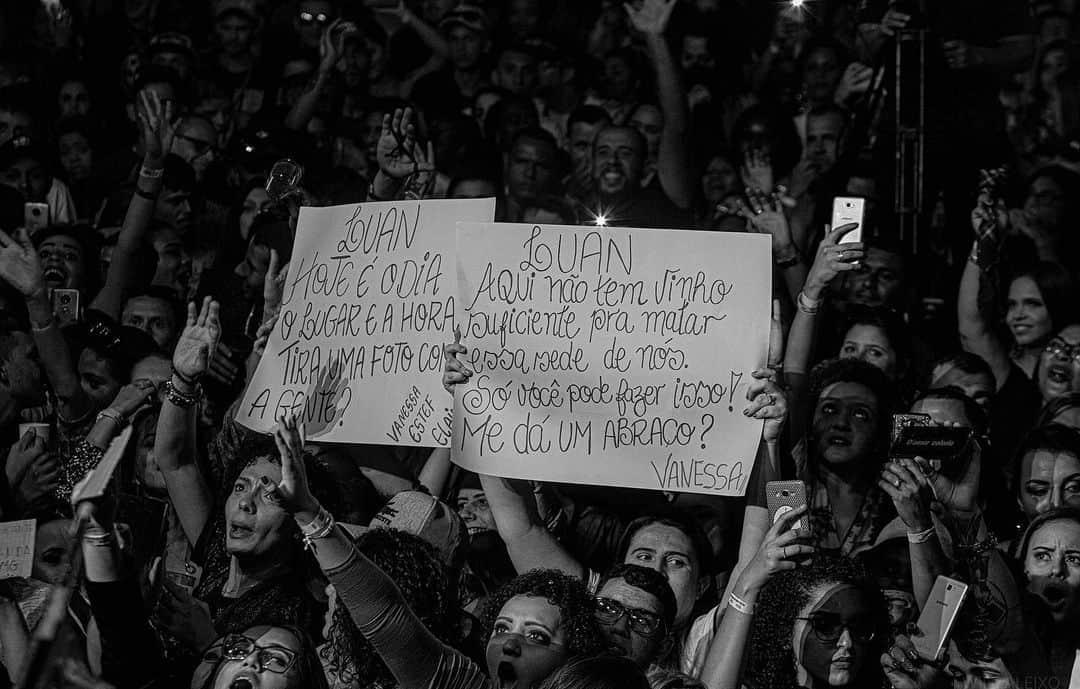 LUAN
HOJE É O DIA
O LUGAR E A HORA
TIRA UMA FOTO COM
A GENTE?
VANESSA
ESTEF
LUAN
AQUI NÃO TEM VINHO
SUFICIENTE PRA MATAR
ESSA SEDE DE NÓS.
SÓ VOCÊ PODE FAZER ISSO!
ME DÁ UM ABRAÇO?
VANESSA
ALEIXO